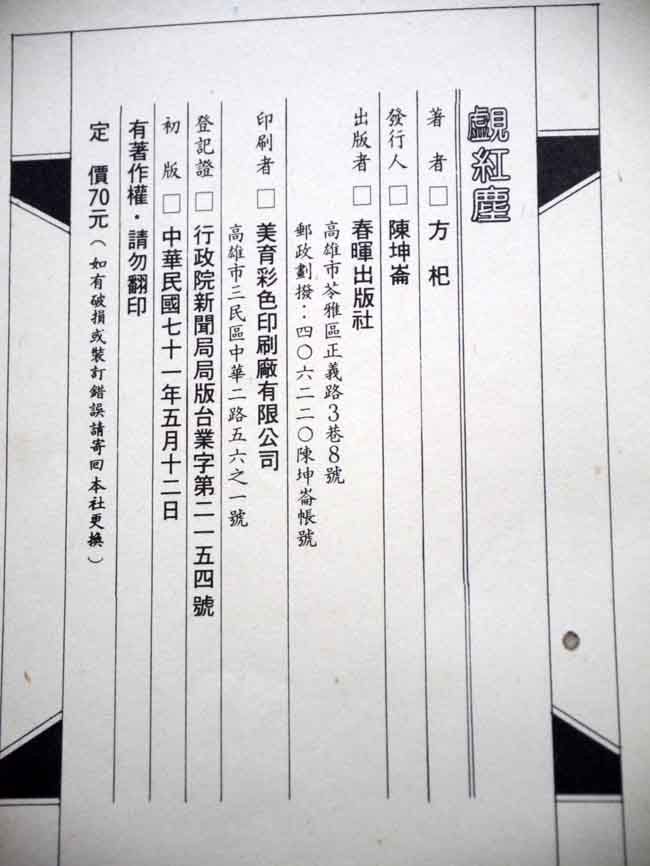 覷紅塵
著者□方杞
發行人□陳坤崙
出版者□春暉出版社
高雄市苓雅區正義路3巷8號
郵政劃撥：四〇六二二〇陳坤崙帳號
印刷者□美育彩色印刷廠有限公司
高雄市三民區中華二路五六之一號
登記證□行政院新聞局局版台業字第二一五四號
初版□中華民國七十一年五月十二日
有著作權・請勿翻印
定價70元（如有破損或裝訂錯誤請寄回本社更換）